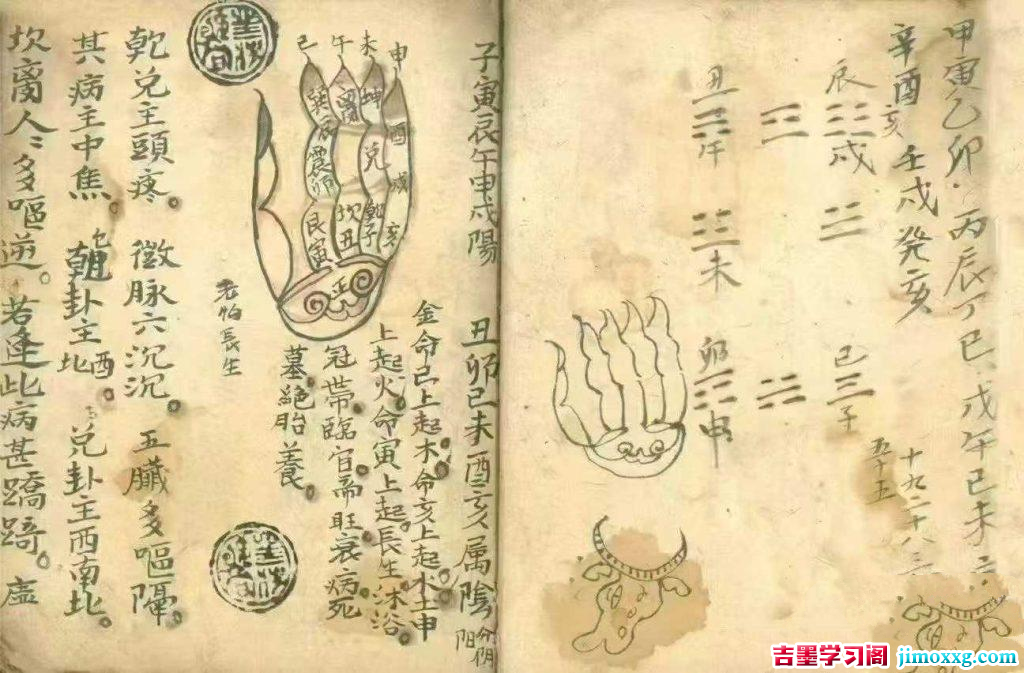 甲寅乙卯丙辰丁巳戊午己未
辛酉亥壬戌癸亥
十九二十八三
五十五
辰
戌
巳
子
丑
午
未
卯
申
子寅辰午申戌陽 丑卯巳未酉亥属陰
分阴阳
金命巳上起木命亥上起水土申
上起火命寅上起長生沐浴
冠帶臨官帝旺衰病死
墓絕胎養
巳 午 未 申
巽 離 坤 酉
辰 兌 戌
震卯 乾 亥
艮寅 坎丑 子
老怕長生
乾兌主頭疼。徵脉六沉沉。五臟多嘔隔。
其病主中焦。乾卦主西北。兌卦主西南北。
坎离人々多嘔逆。若逢此病甚蹺踦。虛
吉墨学习阁 jimoxxg.com